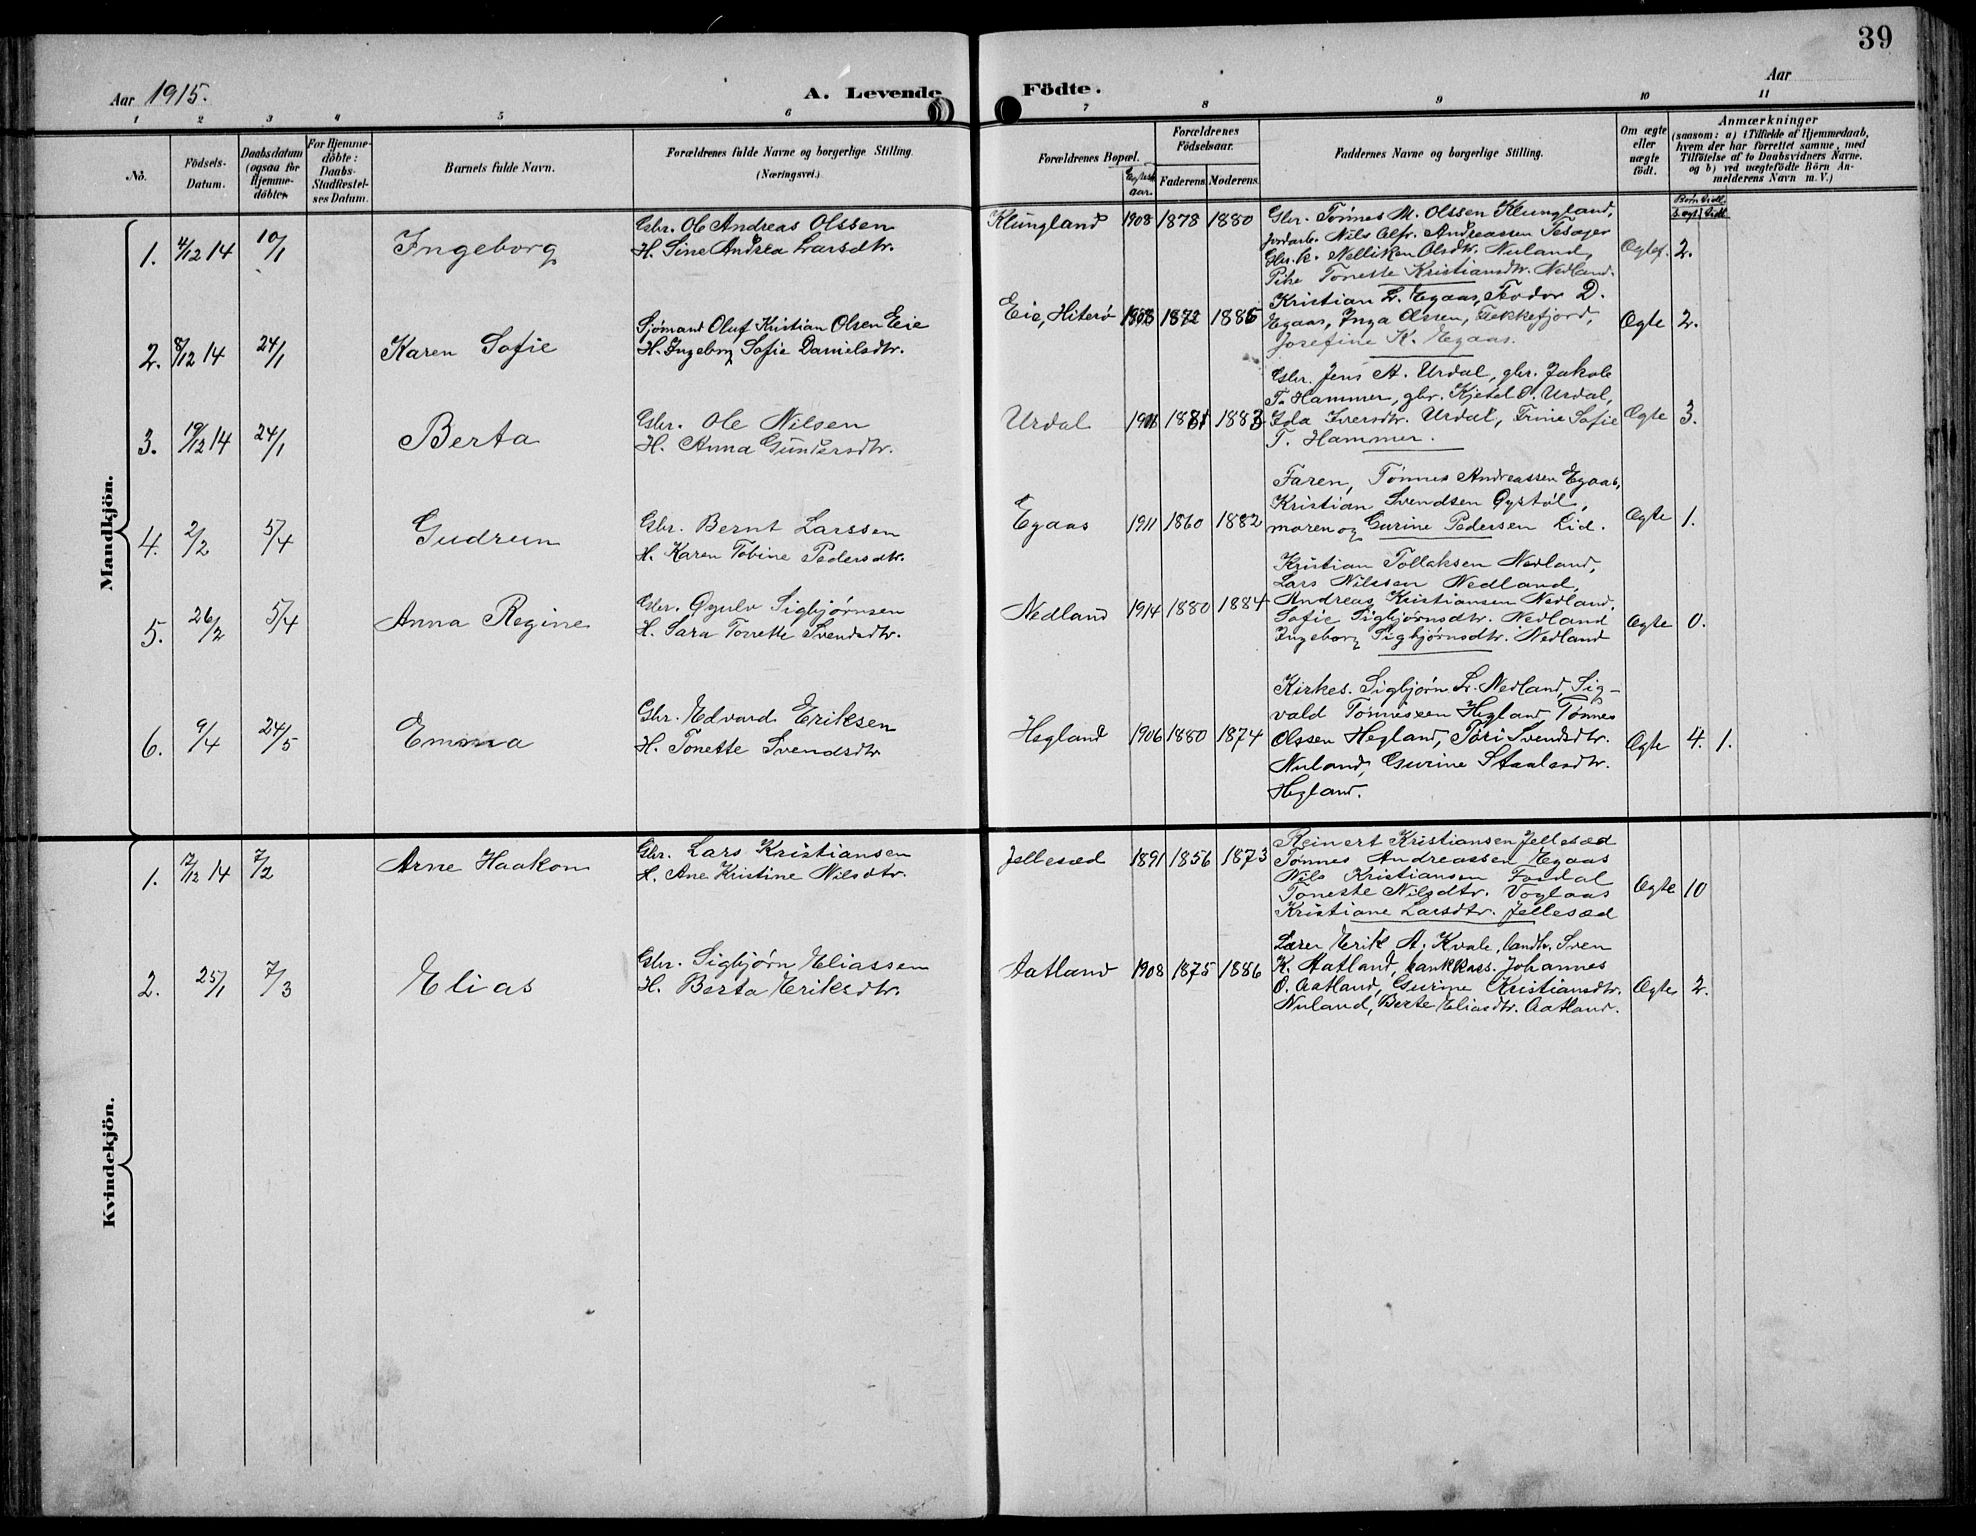 39
Aar 1915.
A. Levende Födte.
Aar
1 2 3 4 5 6 7 8 9 10 11
No.
Födsels-
Datum.
Daabsdatum
(ogsaa for
Hjemme-
døbte).
For Hjemme-
døbte:
Daabs-
Stadfæstel-
ses Datum.
Barnets fulde Navn.
Forældrenes fulde Navne og borgerlige Stilling.
(Næringsvei.)
Forældrenes Bopæl.
Egtesk.
aar.
Forældrenes
Födselsaar.
Faderens. Moderens.
Faddernes Navne og borgerlige Stilling.
Om ægte
eller
uægte
födt.
Anmærkninger
(saasom: a) i Tilfælde af Hjemmedaab,
hvem der har forrettet samme, med
Tilföielse af to Daabsvidners Navne,
og b) ved uægtefödte Börn An-
melderens Navn m. V.)
Mandkjön.
1. 4/12 14 10/1 Ingeborg
Gbr. Ole Andreas Olssen
H. Sine Andrea Larsdtr.
Klungland 1908 1878 1880
Gbr. Tønnes M. Olssen Klungland,
Jordarb. Nils Alfr. Andreassen Tesager
Gbr.k. Nelliken Olsdtr. Nuland,
Pike Tonette Kristiansdtr. Nedland.
Ægtef. 2.
2. 8/12 14 24/1 Karen Sofie
Sjømand Oluf Kristian Olsen Eie
H. Ingeborg Sofie Danielsdtr.
Eie, Hiterø 1872 1885
Kristian L. Egaas, Fodor D.
Egaas, Inga Olssen, Flekkefjord,
Josefine K. Egaas.
Ægte 2.
3. 19/12 14 24/1 Berta
Gbr. Ole Nilsen
H. Anna Gundersdtr.
Urdal 1881 1883
Gbr. Jens A. Urdal, gbr. Jakob
T. Hammer, gbr. Kjetel O. Urdal,
Ida Iversdtr. Urdal, Trine Sofie
T. Hammer.
Ægte 3.
4. 2/2 5/4 Gudrun
Gbr. Bernt Larssen
H. Karen Tobine Pedersdtr.
Egaas 1911 1860 1882
Faren, Tønnes Andreassen Egaas,
Kristian Svendsen Øystøl,
moren og Gurine Pedersen Lid.
Ægte 1.
5. 26/2 5/4 Anna Regine
Gbr. Øgulv Sigbjørnsen
H. Sara Tonette Svendsdtr.
Nedland 1914 1880 1884
Kristian Tollaksen Nedland,
Lars Nilssen Nedland,
Andreas Kristiansen Nedland.
Sofie Sigbjørnsdtr. Nedland
Ingeborg Sigbjørnsdtr. Nedland
Ægte 0.
6. 9/4 24/5 Emma
Gbr. Edvard Eriksen
H. Tonette Svendsdtr
Hegland 1906 1880 1874
Kirkes. Sigbjørn L. Nedland, Sig-
vald Tønnessen Hegland, Tønnes
Olssen Hegland, Tori Svendsdtr.
Nuland, Gurine Staalesdtr.
Hegland.
Ægte 4. 1.
Kvindekjön.
1. 17/12 14 7/2 Arne Haakon
Gbr. Lars Kristiansen
H. Ane Kristine Nilsdtr.
Jellesæd 1891 1856 1873
Reinert Kristiansen Jellesæd
Tønnes Andreassen Egaas
Nils Kristiansen Fosdal
Tonette Nilsdtr. Voglaas
Kristiane Larsdtr. Jellesæd
Ægte 10
2. 25/1 7/3 Elias
Gbr. Sigbjørn Eliassen
H. Berta Eriksdtr.
Aatland 1908 1875 1886
Lærer Erik A. Kvale, landh. Sven
K. Aatland, bankkass. Johannes
O. Aatland, Gurine Kristiansdtr.
Nuland, Berte Eliasdtr. Aatland.
Ægte 2.